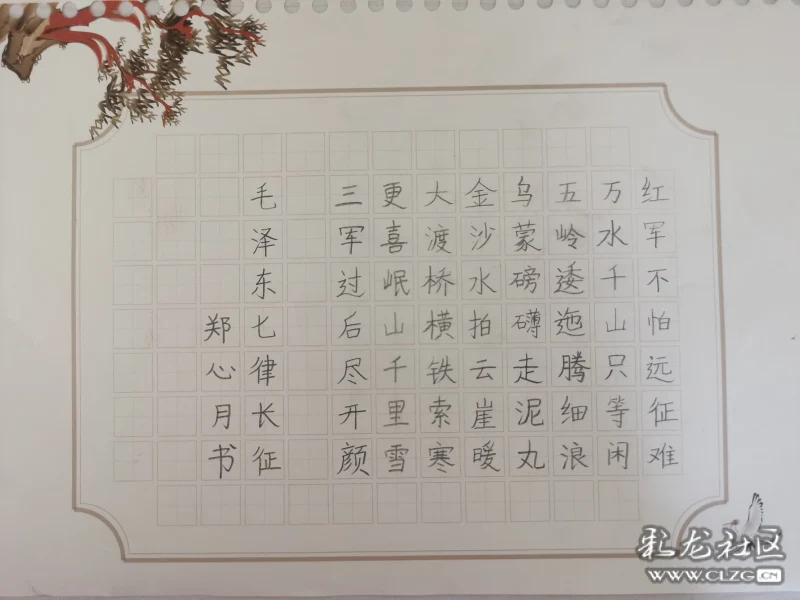 红军不怕远征难
万水千山只等闲
五岭逶迤腾细浪
乌蒙磅礴走泥丸
金沙水拍云崖暖
大渡桥横铁索寒
更喜岷山千里雪
三军过后尽开颜
毛泽东七律长征
郑心月书
彩龙社区
WWW.CLZG.CN